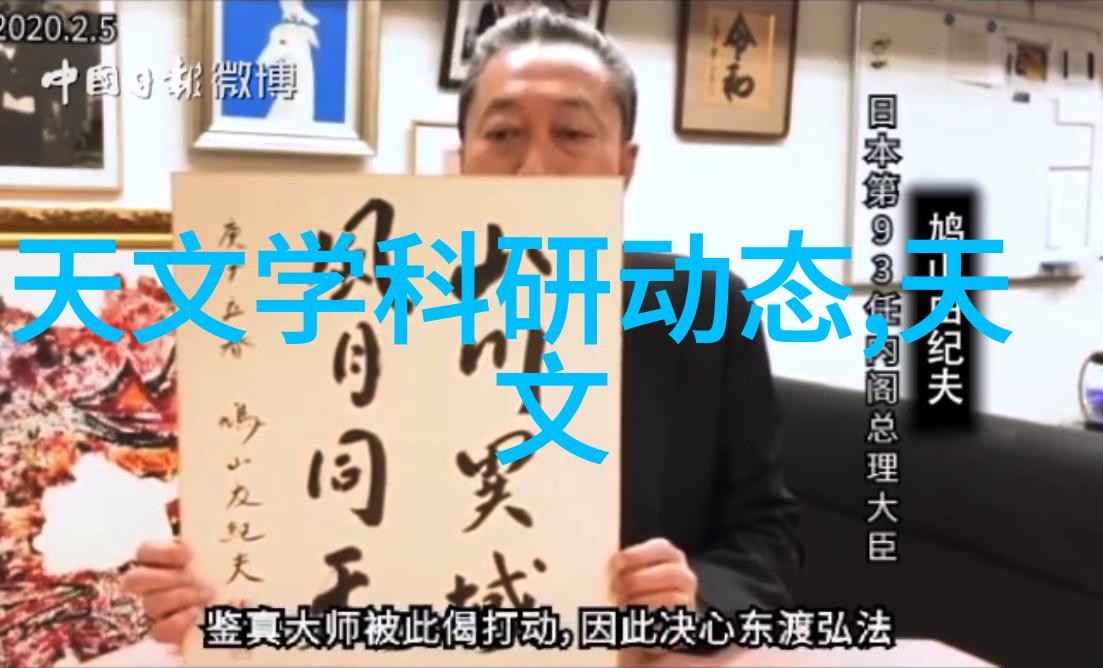 2020.2.5
中國日報微博
令和
天文学科研动态,天
文
日本第93任内阁总理大臣
鸠山由纪夫
山川異域
風月同天
庚子立春 鳩山友紀夫
鉴真大师被此偈打动,因此决心东渡弘法